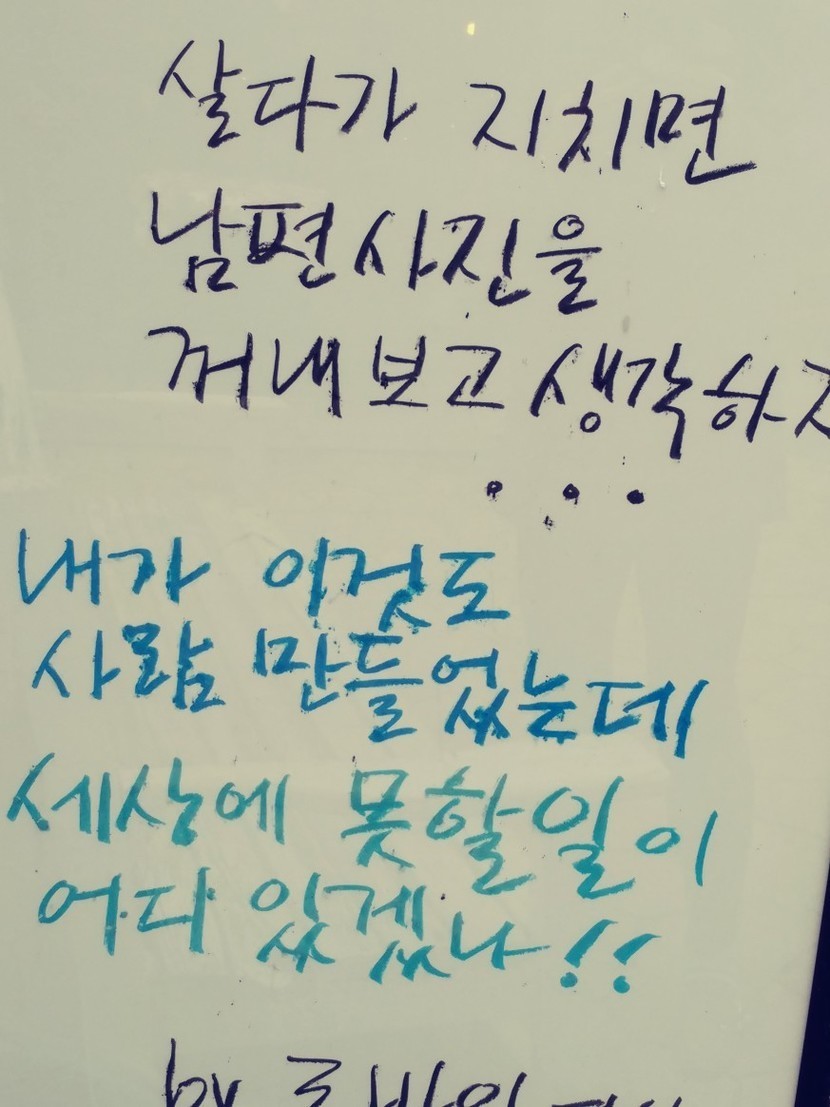 살다가 지치면
남편사진을
꺼내보고 생각하자
...
내가 이것도
사람 만들었는데
세상에 못할일이
어다 있겠나!!
by